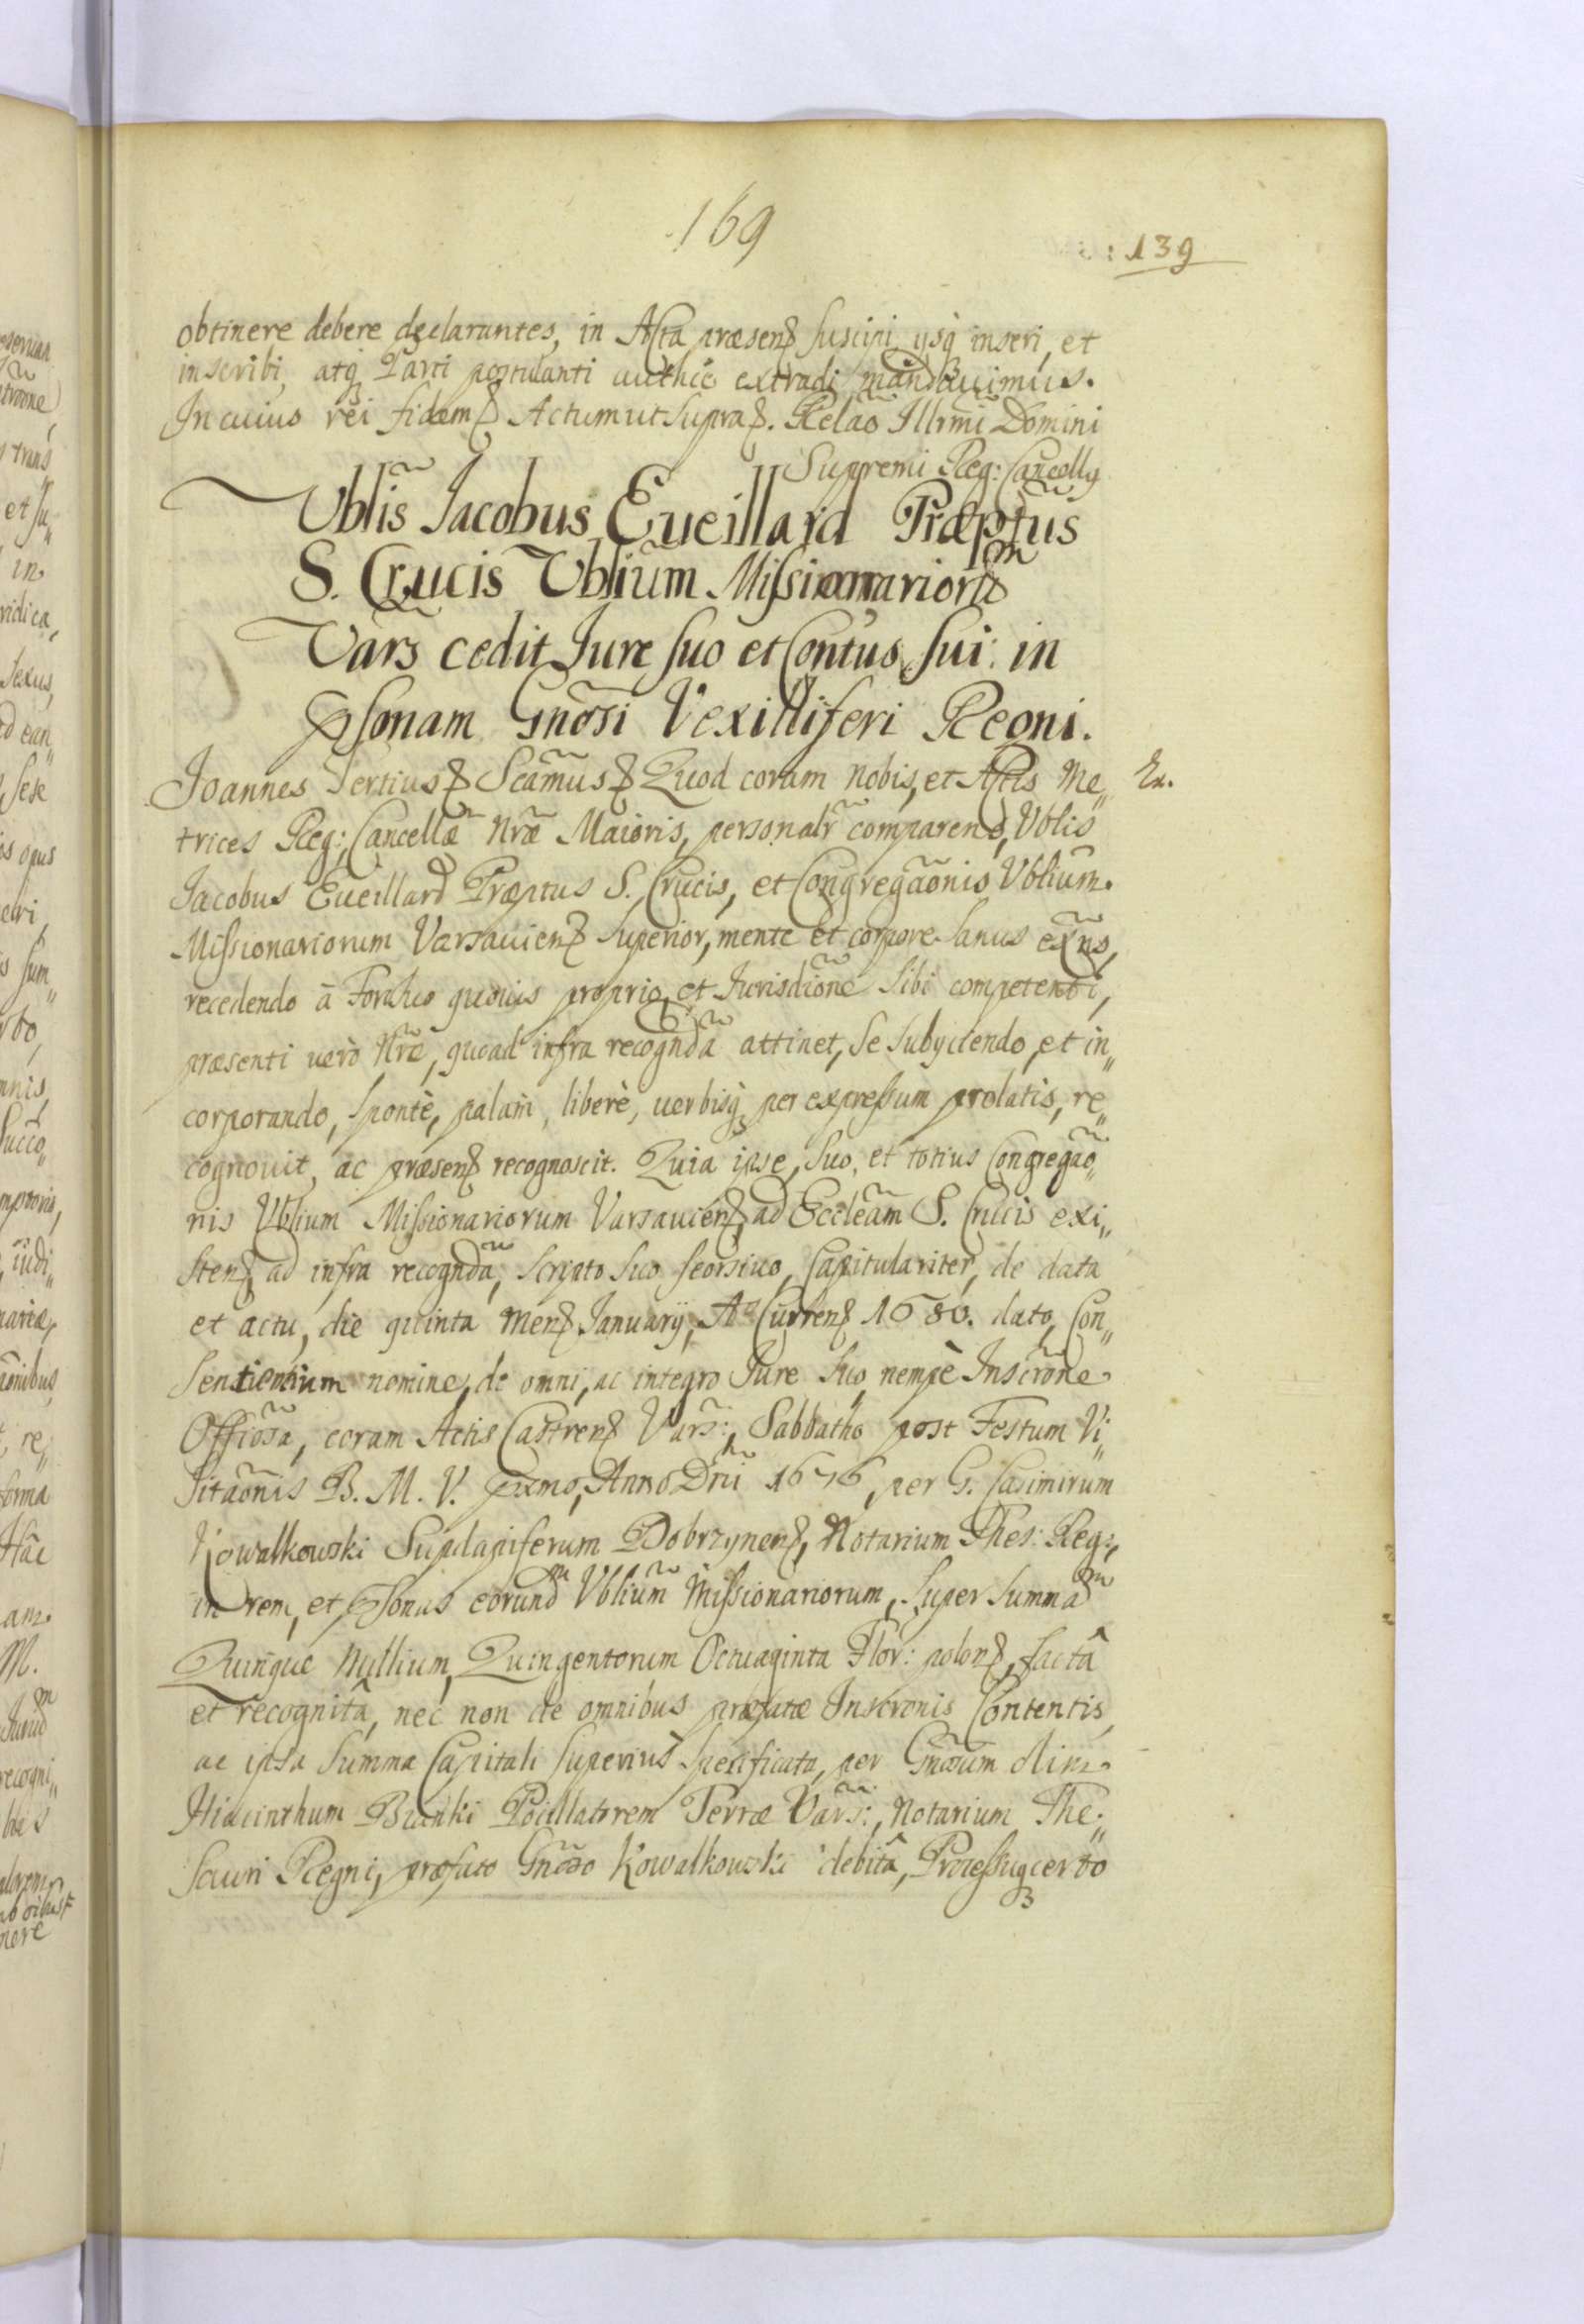 169
: 139
obtinere debere declarantes, in Acta præsen₰ suscipi, ysq́ inseri, et
inscribi, atq́ Parti postulanti authẽ extradi mandavimus.
In cuius rei fidem₰ Actum ut supra₰. Relaõ Illrm̃i Domini
Supremi Reg: Cancelly
Vblis̃ Jacobus Eueillard Præptus̃
S. Crucis Vblium̃ Missionarior̃
Vars̃ cedit Jure suo et Con̄tus sui: in
ꝑsonam Gnõsi Vexilliferi Regni.
Joannes Tertius₰ Scam̃us₰ Quod coram nobis, et Actis Me„
Ex.
trices Reg: Cancellæ Nr̃æ Maioris, personalr̃ comparens, Vblis
Jacobus Eueillard Præptus S. Crucis, et Congregaõnis Vblium̃
Missionariorum Varsavien₰ Superior, mente et corpore sanus exñs,
recedendo à Foro suo quovis proprio, et Jurisdiõne sibi competenti,
præsenti uerò Nr̃æ, quoad infra recognd̃a attinet, se subyciendo, et in„
corporando, spontè, palam̀, liberè, uerbisq́ per expressum prolatis, re„
cognouit, ac præsen₰ recognoscit. Quia ipse, suo, et totius Congregaõ„
nis Vblium Missionariorum Varsavien₰, ad Eccleãm S. Crucis exi„
sten₰, ad infra recognd̃a, scripto suo seorsiuo, Capitulariter, de data
et actu, die quinta men₰ January, Aº Curren₰ 1680. dato, Con„
sentientium nomine, de omni, ac integro Jure suo, nempè Inscrõne
Officiõsa, coram Actis Castren₰ Vars̃:, Sabbatho post Festum Vi„
sitaõnis B. M. V. pxmo, Anno Dñi 1676, per G. Casimirum
Kowalkowski Supdapiferum Dobrzynen₰, Notarium Thes: Reg:,
in rem, et ꝑsonas eorundᵐ Vblium̃ Missionariorum, super summaᵐ
Quinque Millium, Quingentorum Octuaginta Flor: polon₰, factâ
et recognitâ, nec non de omnibus præfatæ Inscronis Contentis,
ac ipsa summa Capitali superius specificata, per Gnõsum olim
Hiacinthum Bianki Pocillatorem Terræ Vars̃:, Notarium The„
sauri Regni, præfato Gnõso Kowalkowski debitâ, Processuq́ certo